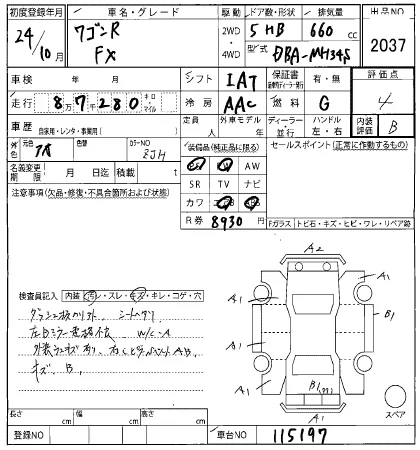 初度登録年月 車名・グレード 駆動 ドア数・形状 排気量 出品NO
24/10月 ワゴンR FX 2WD・4WD 5 HB 660 cc 2037
型式 DBA-MH34S
車検 年 月 シフト IAT 保証書 有・無 評価点
走行 8万7千280 キロ・マイル 冷房 AAC 燃料 G 4
車歴 自家用・レンタ・事業用( ) 定員 人 外車モデル 年 ディーラー・並行 ハンドル 左・右 内装評価 B
外色 元色 色替 カラーNO ZJH
装備品(純正品に限る) セールスポイント(正常に作動するもの)
名義変更期限 月 日迄 積載 t
PS PW AW
SR TV ナビ
注意事項(欠品・修復・不具合箇所および状態)
カワ
R券 8930
Fガラス トビ石・キズ・ヒビ・ワレ・リペア跡
検査員記入 内装 汚レ・スレ・キズ・キレ・コゲ・穴
シートヘタリ
W/C-A
キズ B,
A2
A1 A1
A1 B1
A1 A1
B1
A1
スペア
長さ cm 幅 cm 高さ cm
登録NO 車台NO 115197